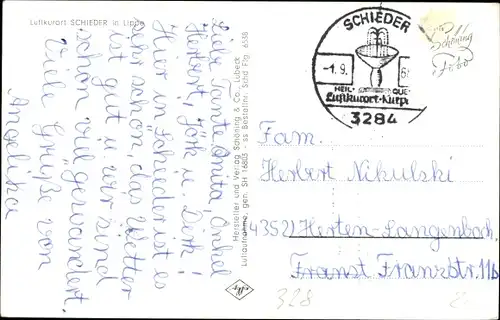 Luftkurort SCHIEDER in Lippe
Liebe Tante Anita, Onkel
Herbert, Jörk u. Dirk!
Hier in Schieder ist es
sehr schön, das Wetter
ist gut u. wir sind
schon viel gewandert.
Viele Grüße von
Angelika
Hersteller und Verlag Schöning & Co., Lübeck
Luftaufnahme, gen. SH 16805 - ss Bestellnr. Schd Flg. 6538
SCHIEDER
-1.9.
HEIL- QUE
Luftkurort-Kurpa
3284
Schöning
Foto
Fam.
Herbert Nikulski
4352) Herten-Langenbach,
Franst Franzstr. 11b
328